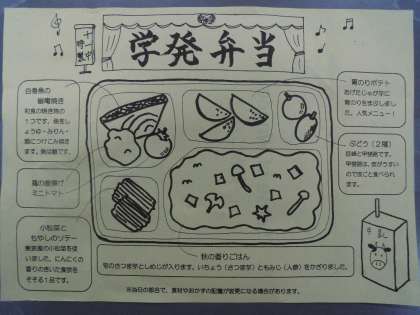 十一中
特製
学発弁当
白身魚の
幽庵焼き
和食の焼き物の
1つです。魚をし
ょうゆ・みりん・
酒につけこみ焼き
ます。魚は鯖です。
鶏の唐揚げ
ミニトマト
小松菜と
もやしのソテー
東京産の小松菜を使
いました。にんにくの
香りのきいた食欲を
そそる1品です。
青のりポテト
あげたじゃが芋に
青のりをまぶしまし
た。人気メニュー!
ぶどう(2種)
巨峰と甲斐路です。
甲斐路は、皮がうすい
ので皮ごと食べられ
ます。
牛乳
秋の香りごはん
旬のさつま芋としめじが入ります。いちょう(さつま芋)ともみじ(人参)をかざりました。
※当日の都合で、食材やおかずの配置が変更になる場合があります。